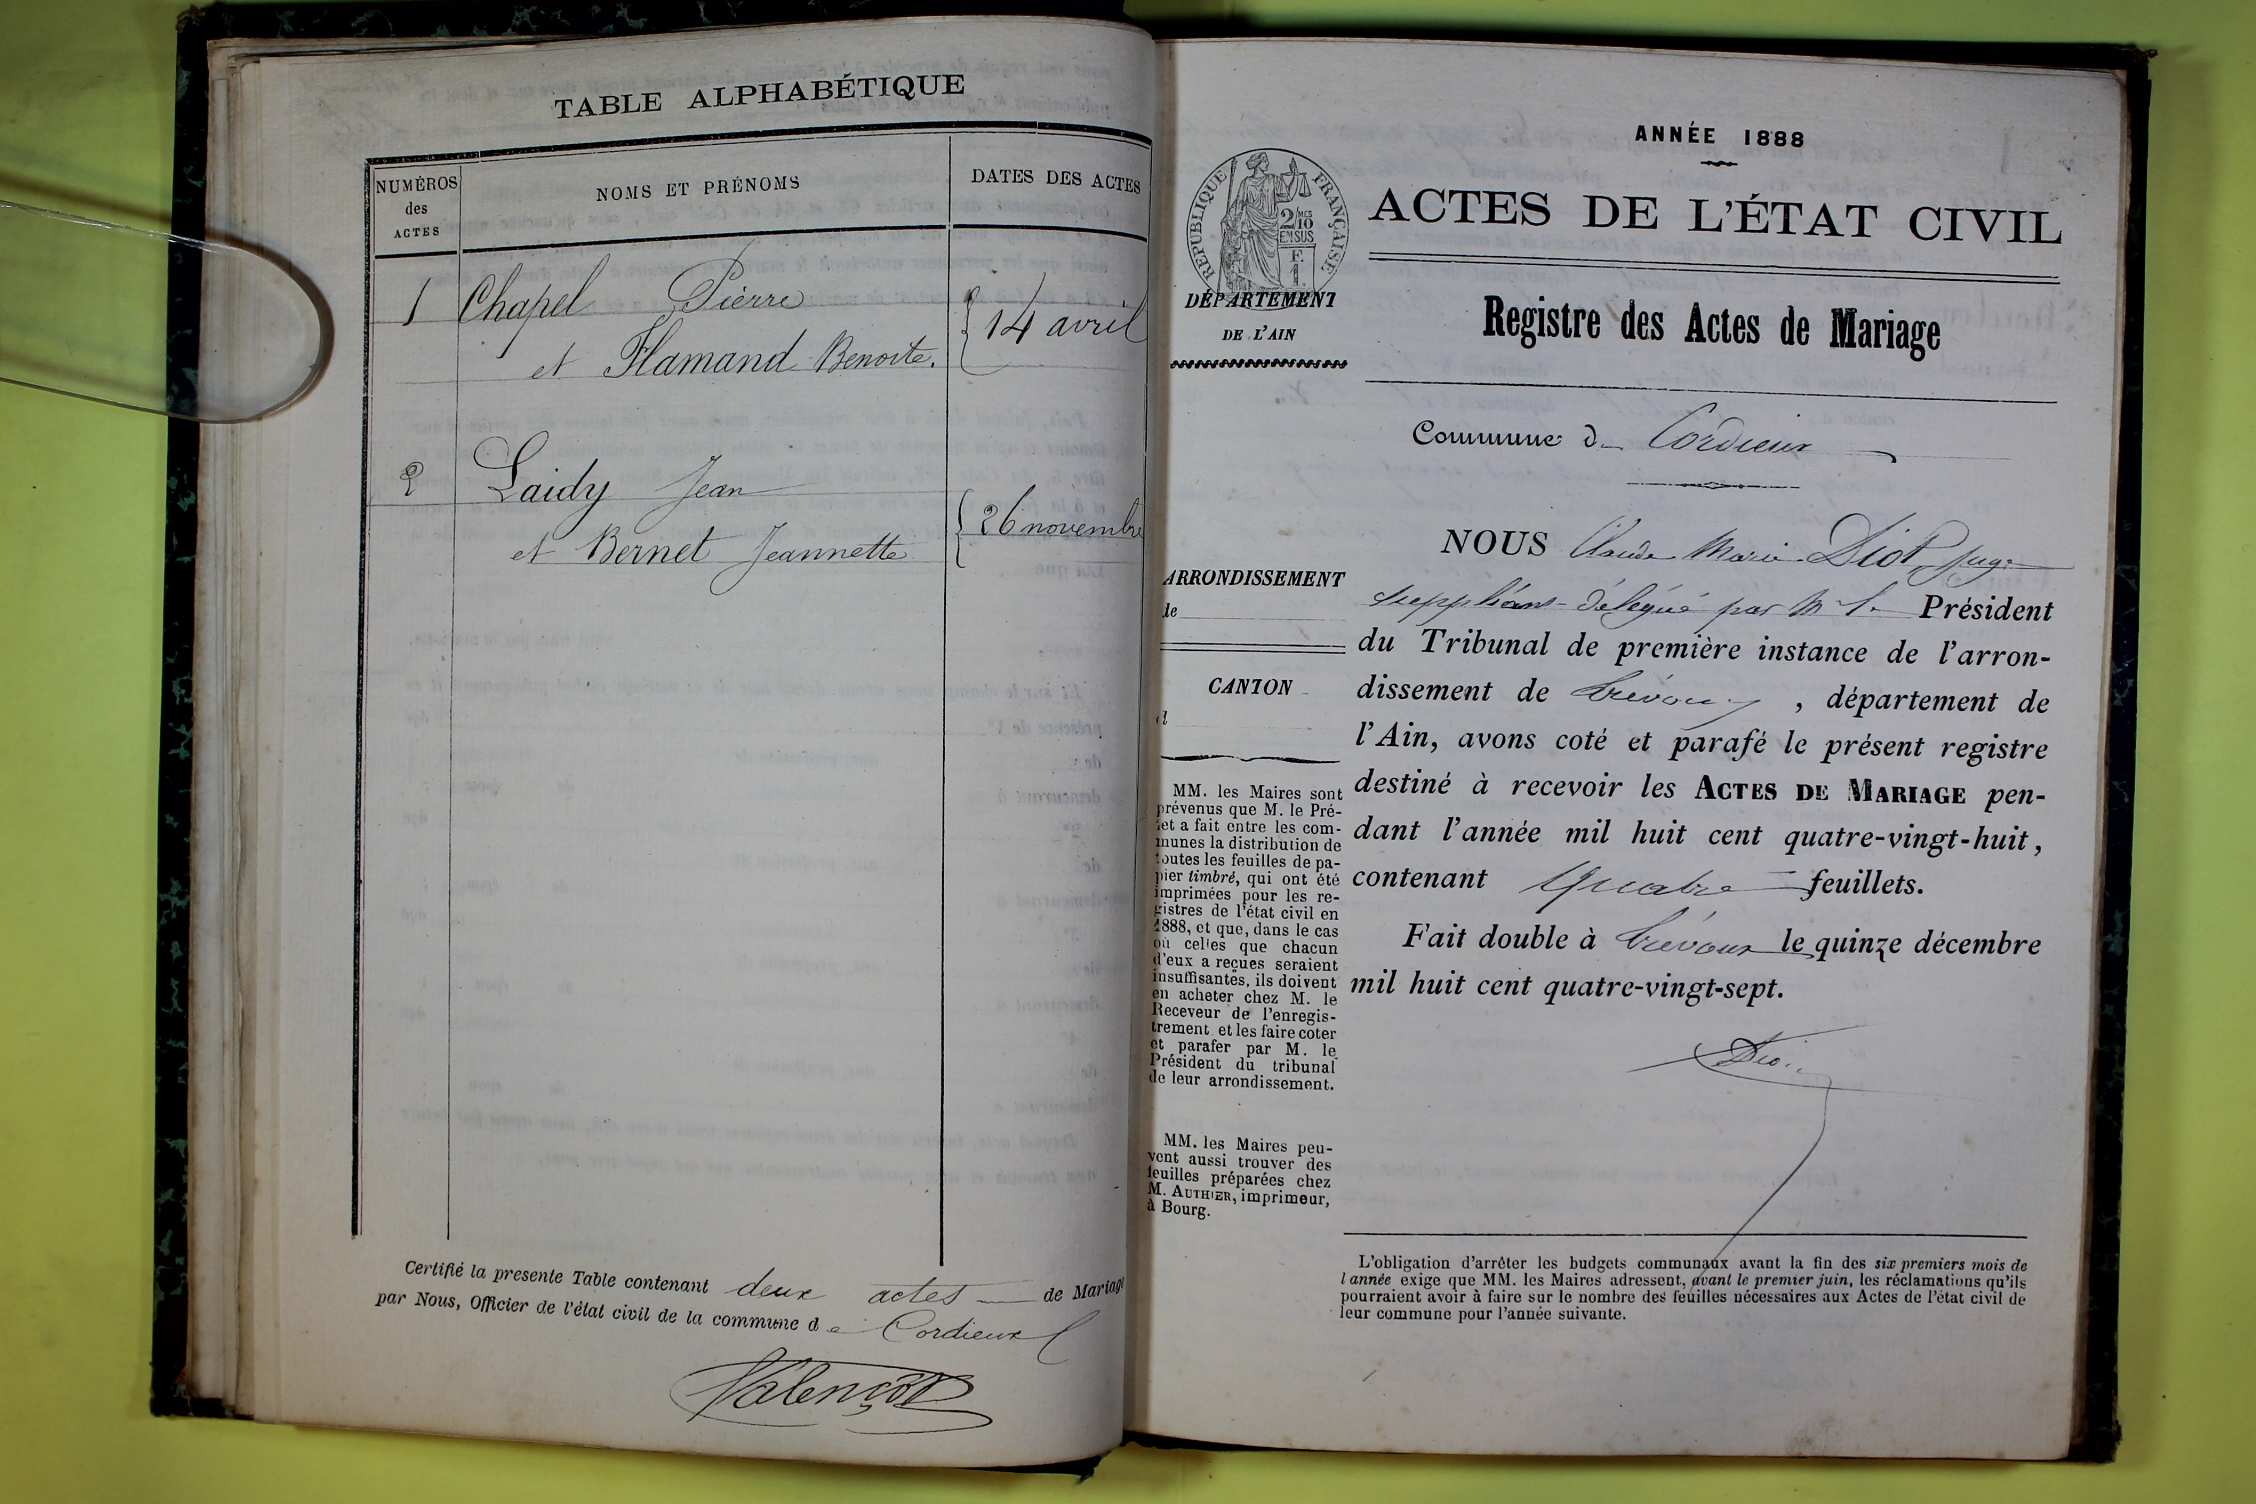 TABLE ALPHABÉTIQUE
NUMÉROS
des
ACTES
NOMS ET PRÉNOMS
DATES DES ACTES
1 Chapel Pierre
et Flamand Benoite.
14 avril
2 Laidy Jean
et Bernet Jeannette
26 novembre
Certifié la presente Table contenant deux actes de Mariage
par Nous, Officier de l'état civil de la commune de Cordieux
Valençot
ANNÉE 1888
RÉPUBLIQUE FRANÇAISE
2/10 MES
EN SUS
F.
1
DÉPARTEMENT
DE L'AIN
ARRONDISSEMENT
de
CANTON
d
MM. les Maires sont
prévenus que M. le Pré-
fet a fait entre les com-
munes la distribution de
toutes les feuilles de pa-
pier timbré, qui ont été
imprimées pour les re-
gistres de l'état civil en
1888, et que, dans le cas
où celles que chacun
d'eux a reçues seraient
insuffisantes, ils doivent
en acheter chez M. le
Receveur de l'enregis-
trement et les faire coter
et parafer par M. le
Président du tribunal
de leur arrondissement.
MM. les Maires peu-
vent aussi trouver des
feuilles préparées chez
M. AUTHIER, imprimeur,
à Bourg.
ACTES DE L'ÉTAT CIVIL
Registre des Actes de Mariage
Commune de Cordieux
NOUS Claude Marie Diot, juge
suppléant délégué par Mr le Président
du Tribunal de première instance de l'arron-
dissement de Trévoux, département de
l'Ain, avons coté et parafé le présent registre
destiné à recevoir les ACTES DE MARIAGE pen-
dant l'année mil huit cent quatre-vingt-huit,
contenant Quatre feuillets.
Fait double à Trévoux le quinze décembre
mil huit cent quatre-vingt-sept.
Diot
L'obligation d'arrêter les budgets communaux avant la fin des six premiers mois de
l'année exige que MM. les Maires adressent, avant le premier juin, les réclamations qu'ils
pourraient avoir à faire sur le nombre des feuilles nécessaires aux Actes de l'état civil de
leur commune pour l'année suivante.